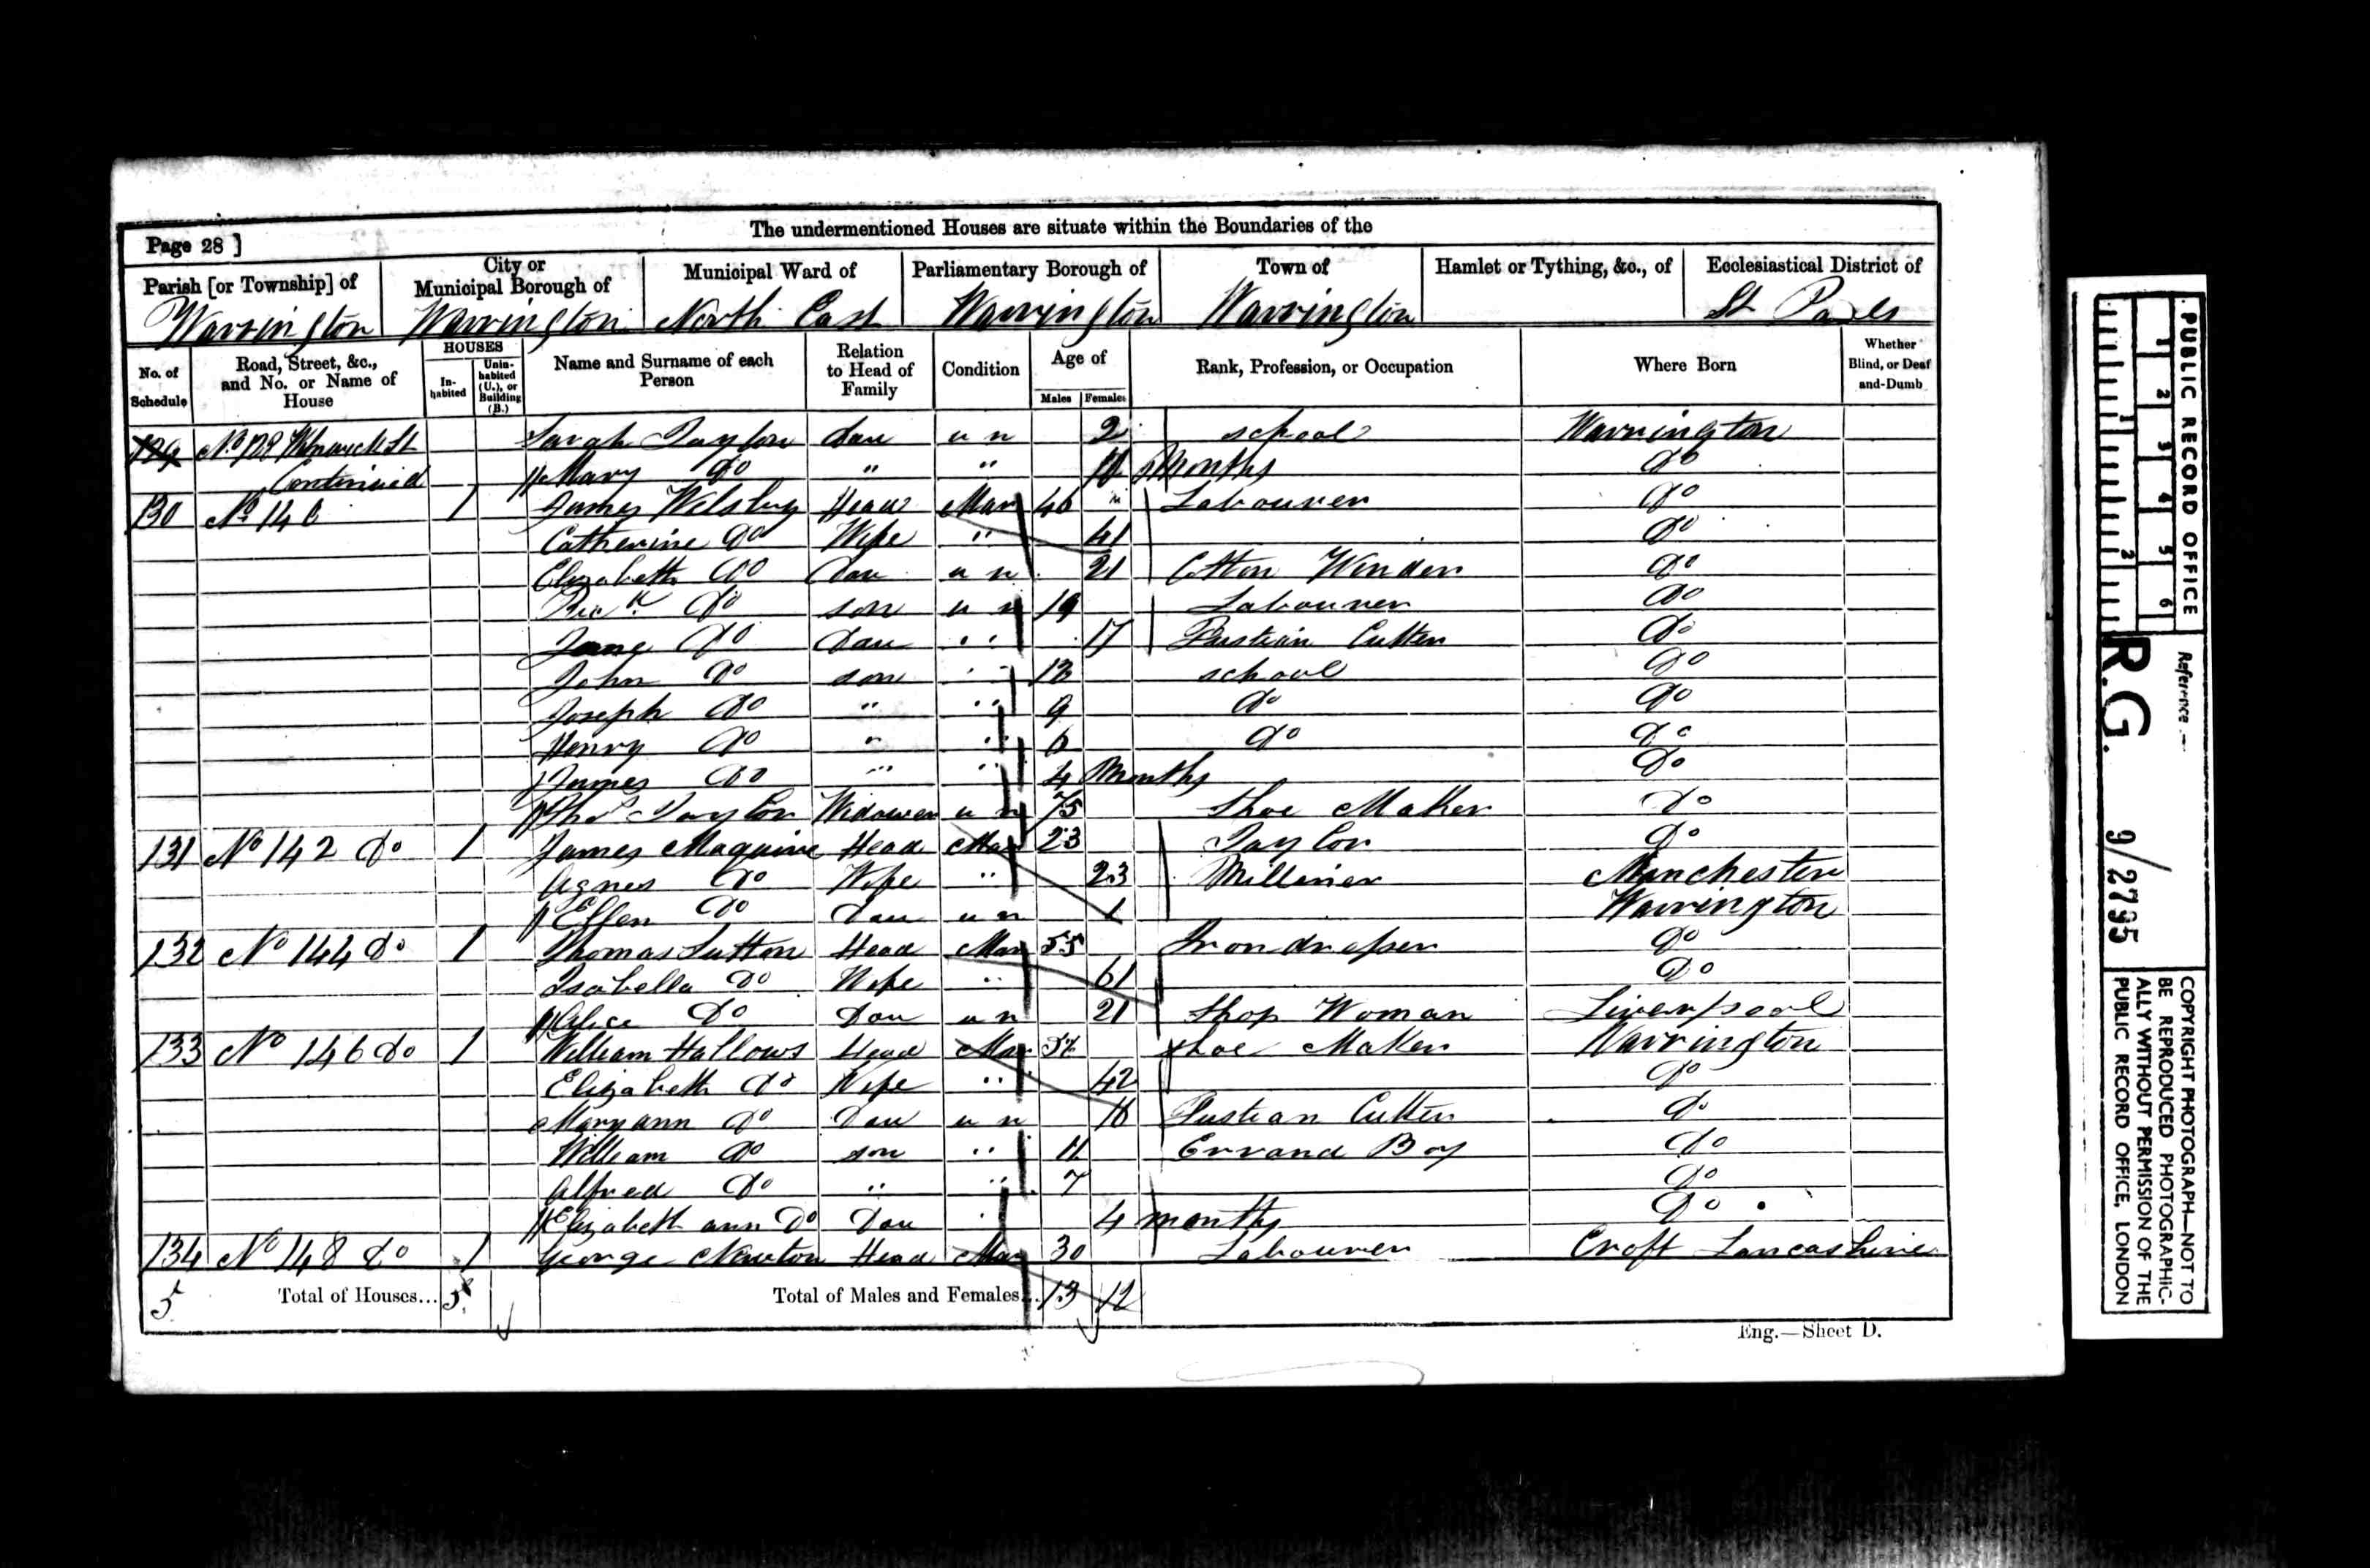 The undermentioned Houses are situate within the Boundaries of the
Page 28 ]
Parish [or Township] of
City or Municipal Borough of
Municipal Ward of
Parliamentary Borough of
Town of
Hamlet or Tything, &c., of
Ecclesiastical District of
Warrington Warrington North East Warrington Warrington St Pauls
No. of Schedule
Road, Street, &c., and No. or Name of House
HOUSES
In-habited
Unin-habited (U.), or Building (B.)
Name and Surname of each Person
Relation to Head of Family
Condition
Age of
Males Females
Rank, Profession, or Occupation
Where Born
Whether Blind, or Deaf-and-Dumb
129 No Sarah Taylor Dau un 2 school Warrington
Continued Mary Do " " Months Do
130 No 140 1 James Welsby Head Mar 46 Labourer Do
Catherine Do Wife " 41 Do
Elizabeth Do Dau un 21 Cotton Winder Do
Do son un 19 Labourer Do
Jane Do Dau " 17 Fustian Cutter Do
John Do son " school Do
Joseph Do " " 9 Do Do
Henry Do " " 6 Do Do
James Do " " 4 Months Do
Thos Taylor Widower un 75 Shoe Maker Do
131 No 142 Do 1 James Maguire Head Mar 23 Taylor Do
Agnes Do Wife " 23 Milliner Manchester
Ellen Do Dau un 1 Warrington
132 No 144 Do 1 Thomas Sutton Head Mar 55 Irondresser Do
Isabella Do Wife " 61 Do
Alice Do Dau un 21 Shop Woman Liverpool
133 No 146 Do 1 William Hallows Head Mar Shoe Maker Warrington
Elizabeth Do Wife " 42 Do
Mary ann Do Dau un Fustian Cutter Do
William Do son " 11 Errand Boy Do
Alfred Do " " 7 Do
Elizabeth ann Do Dau " 4 months Do
134 No 148 Do 1 George Newton Head Mar 30 Labourer Croft Lancashire
5 Total of Houses... 5 Total of Males and Females... 13 12
Eng.—Sheet D.
PUBLIC RECORD OFFICE
1 2 3 4 5 6
1 2
Reference:—
R.G. 9/2795
COPYRIGHT PHOTOGRAPH—NOT TO
BE REPRODUCED PHOTOGRAPHIC-
ALLY WITHOUT PERMISSION OF THE
PUBLIC RECORD OFFICE, LONDON